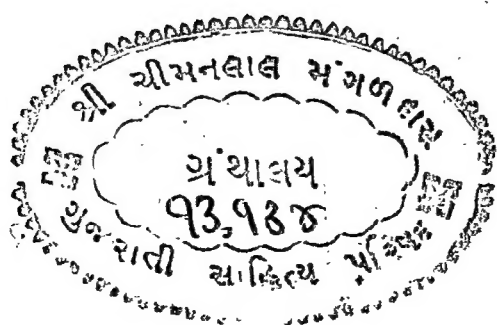 શ્રી ચીમનલાલ મંગળદાસ
ગ્રંથાલય
૧૩,૧૩૪
ગુજરાતી સાહિત્ય પરિષદ